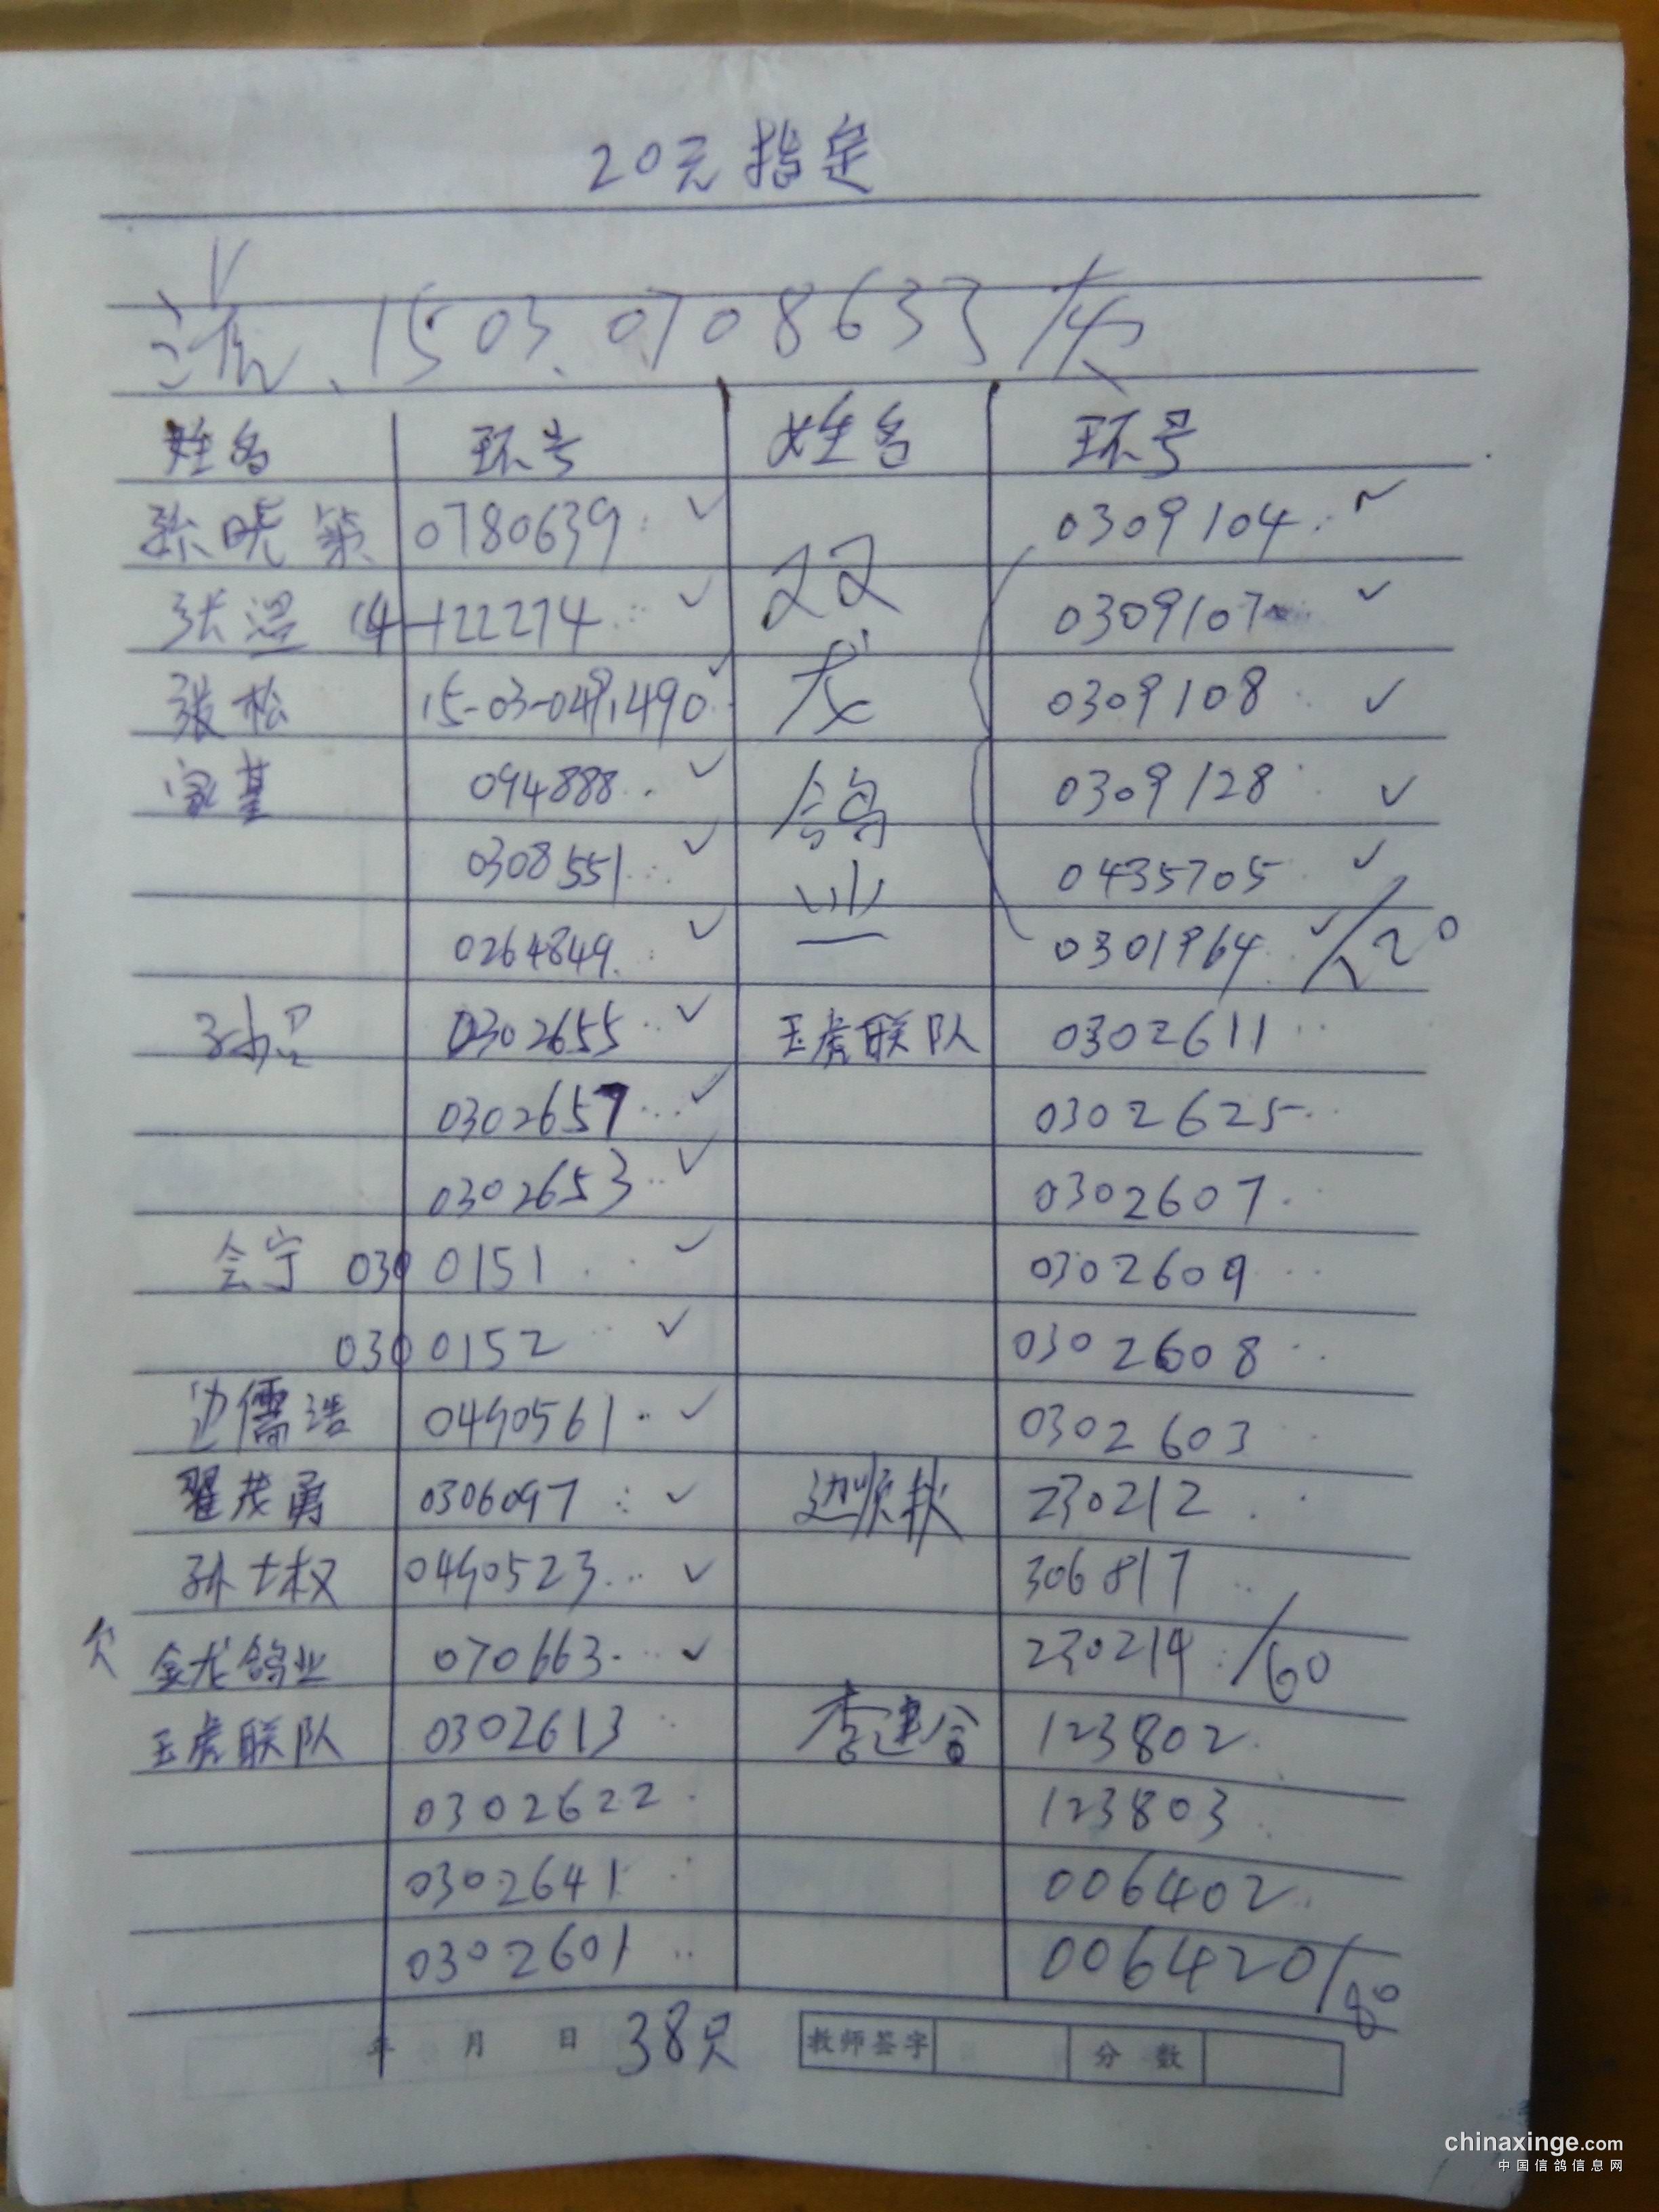 20元指定
1503.0708633 灰
姓名 环号 姓名 环号
张晓 0780639 ✓ 0309104 ✓
张温 14-122274 ✓ 双 0309107 ✓
张松 15-03-0491490 ✓ 龙 0309108 ✓
家基 094888 ✓ 鸽 0309128 ✓
0308551 ✓ 业 0435705 ✓
0264849 ✓ 0301964 ✓ /120
0302655 ✓ 玉虎联队 0302611
0302657 ✓ 0302625
0302653 ✓ 0302607
会宁 0300151 ✓ 0302609
0300152 ✓ 0302608
边儒浩 0490561 ✓ 0302603
翟茂勇 0306097 ✓ 边顺秋 230212
孙士权 0490523 ✓ 306817
欠 金龙鸽业 070663 ✓ 230214 /60
玉虎联队 0302613 李建合 123802
0302622 123803
0302641 006402
0302601 006420/80
年 月 日 38只 教师签字 分数
chinaxinge.com
中国信鸽信息网